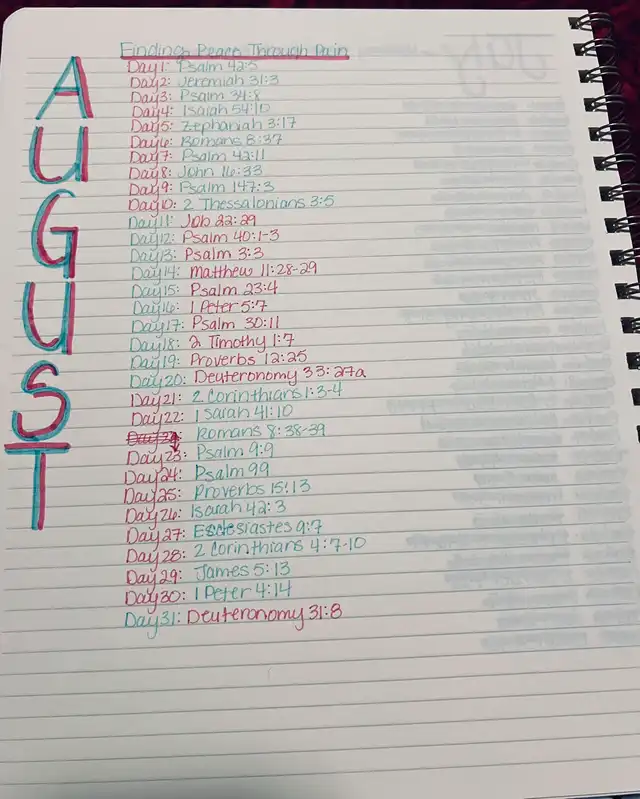 Finding Peace Through Pain
AUGUST
Day1: Psalm 42:5
Day2: Jeremiah 31:3
Day3: Psalm 34:8
Day4: Isaiah 54:10
Day5: Zephaniah 3:17
Day6: Romans 8:37
Day7: Psalm 42:11
Day8: John 16:33
Day9: Psalm 147:3
Day10: 2 Thessalonians 3:5
Day11: Job 22:29
Day12: Psalm 40:1-3
Day13: Psalm 3:3
Day14: Matthew 11:28-29
Day15: Psalm 23:4
Day16: 1 Peter 5:7
Day17: Psalm 30:11
Day18: 2 Timothy 1:7
Day19: Proverbs 12:25
Day20: Deuteronomy 33:27a
Day21: 2 Corinthians 1:3-4
Day22: Isaiah 41:10
Romans 8:38-39
Day23: Psalm 9:9
Day24: Psalm 99
Day25: Proverbs 15:13
Day26: Isaiah 42:3
Day27: Ecclesiastes 9:7
Day28: 2 Corinthians 4:7-10
Day29: James 5:13
Day30: 1 Peter 4:14
Day31: Deuteronomy 31:8